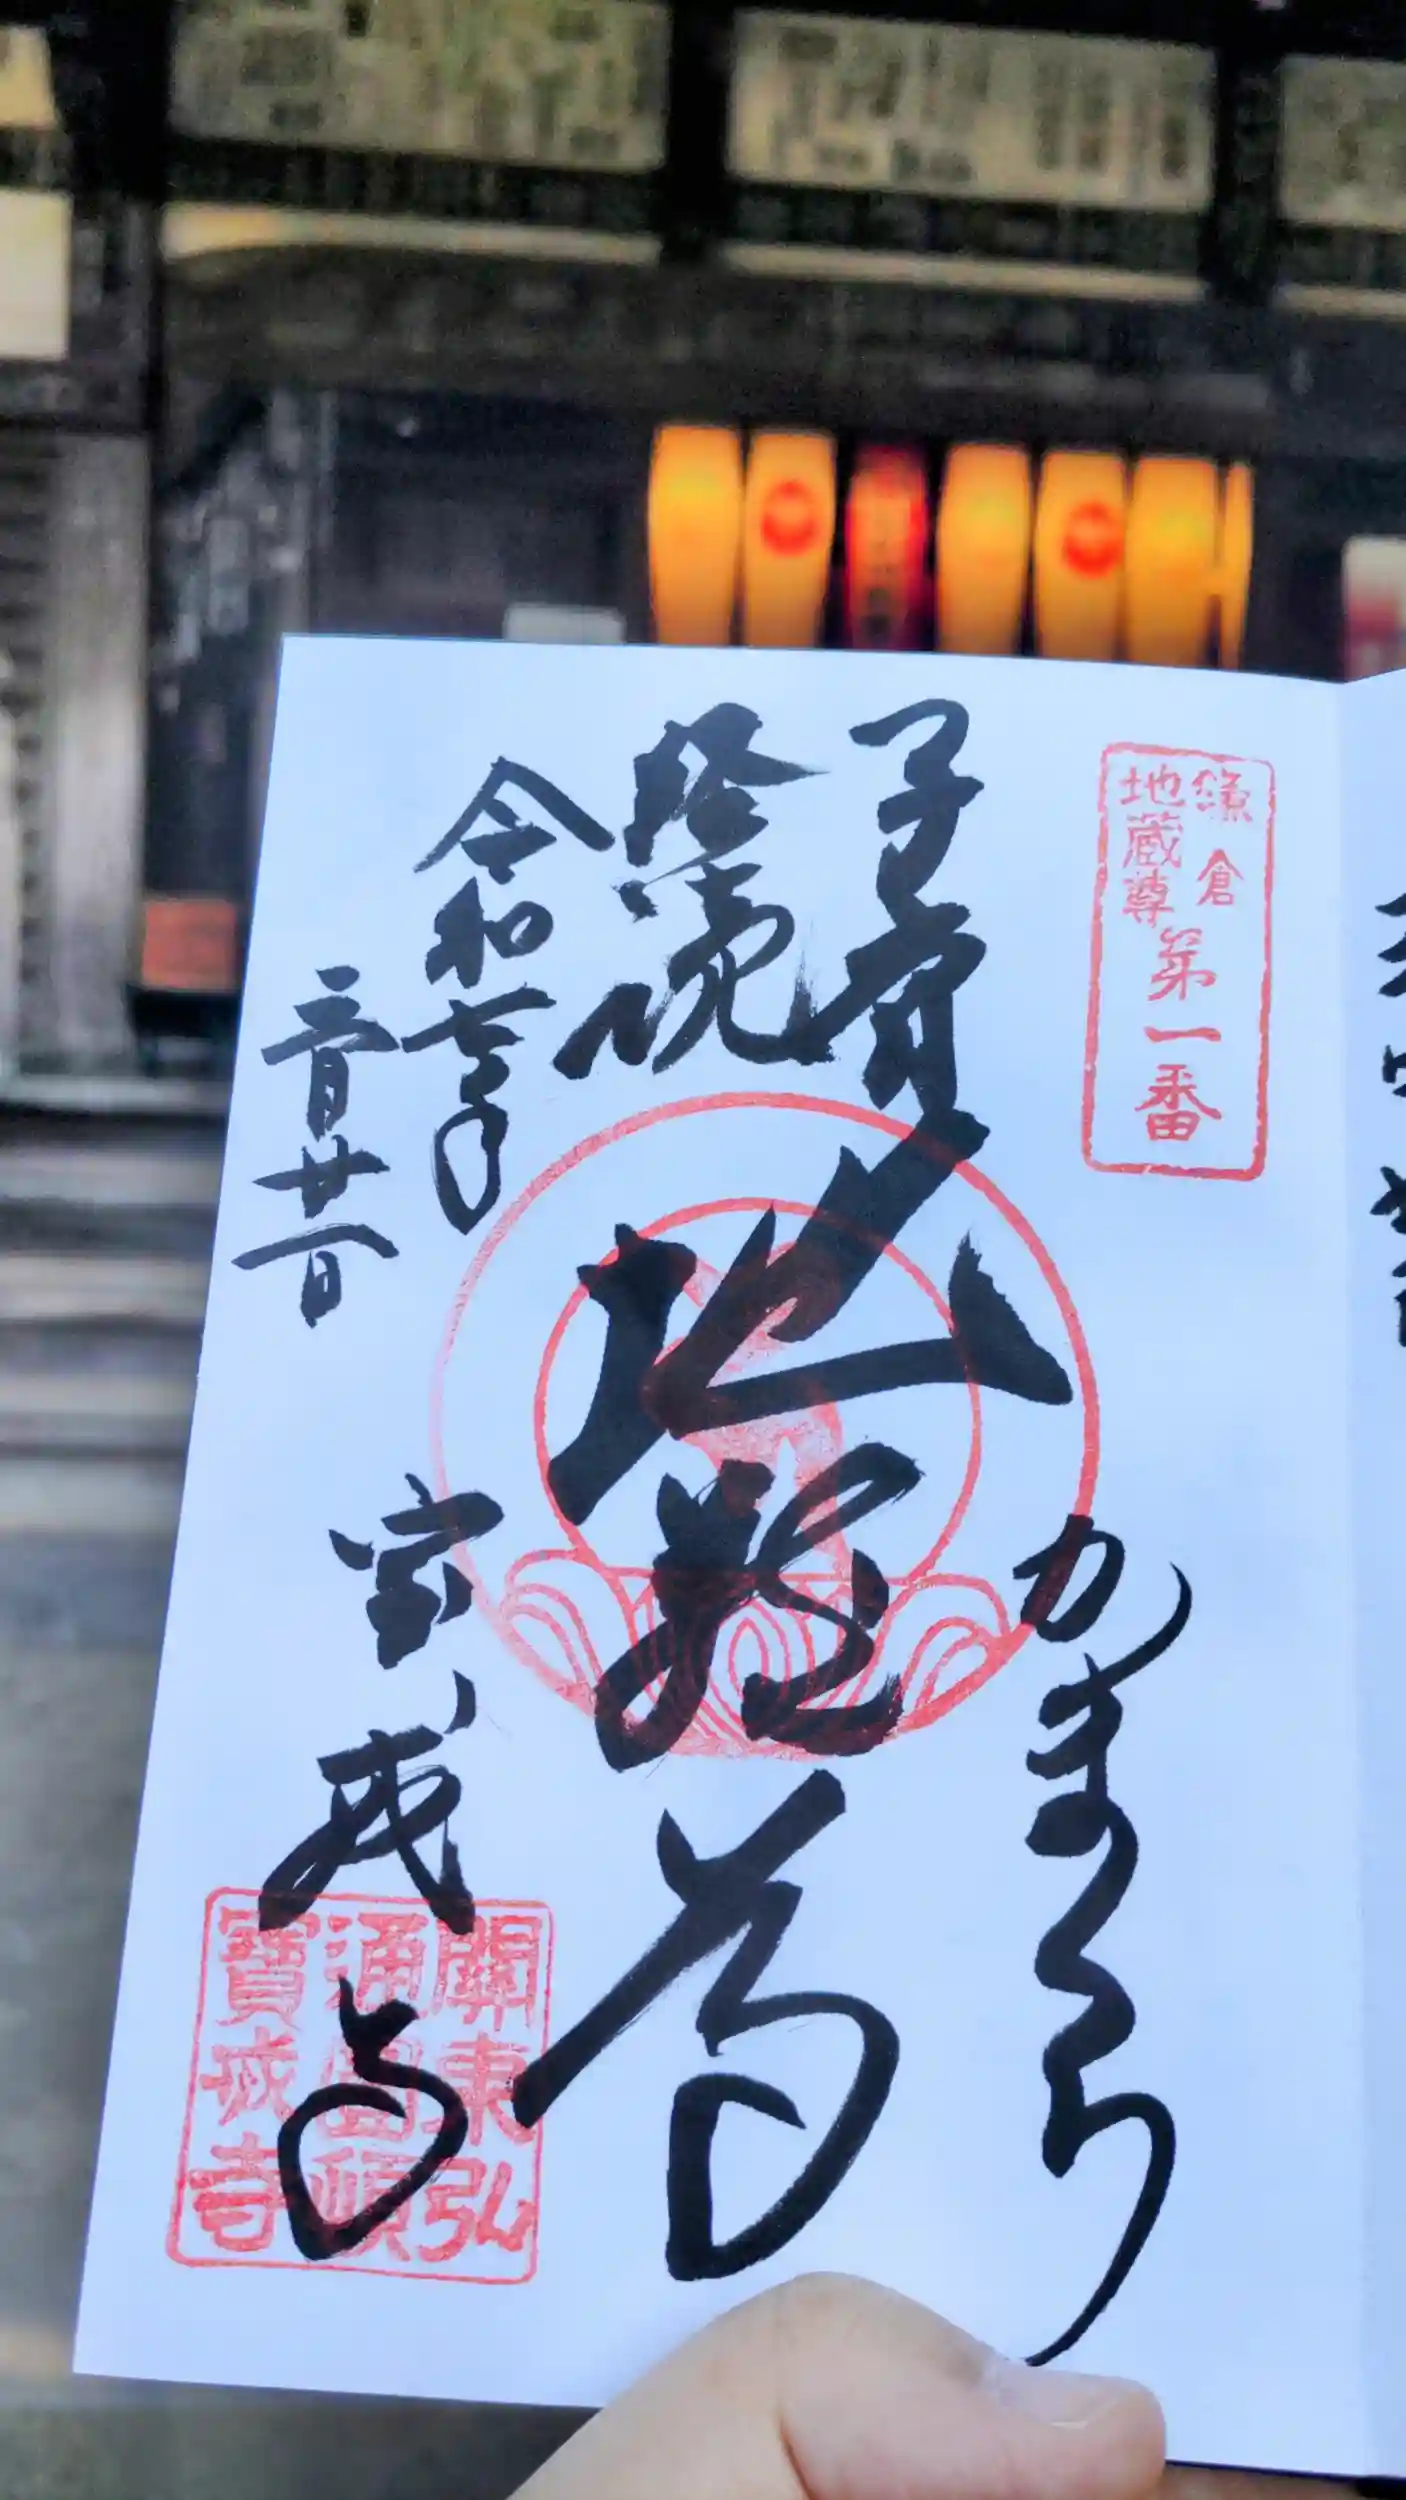 鎌倉
地蔵尊
第一番
子育
経読
地蔵尊
かまくら
令和七年
二月廿一日
宝戒寺
關東弘
通圓頓
寶戒寺